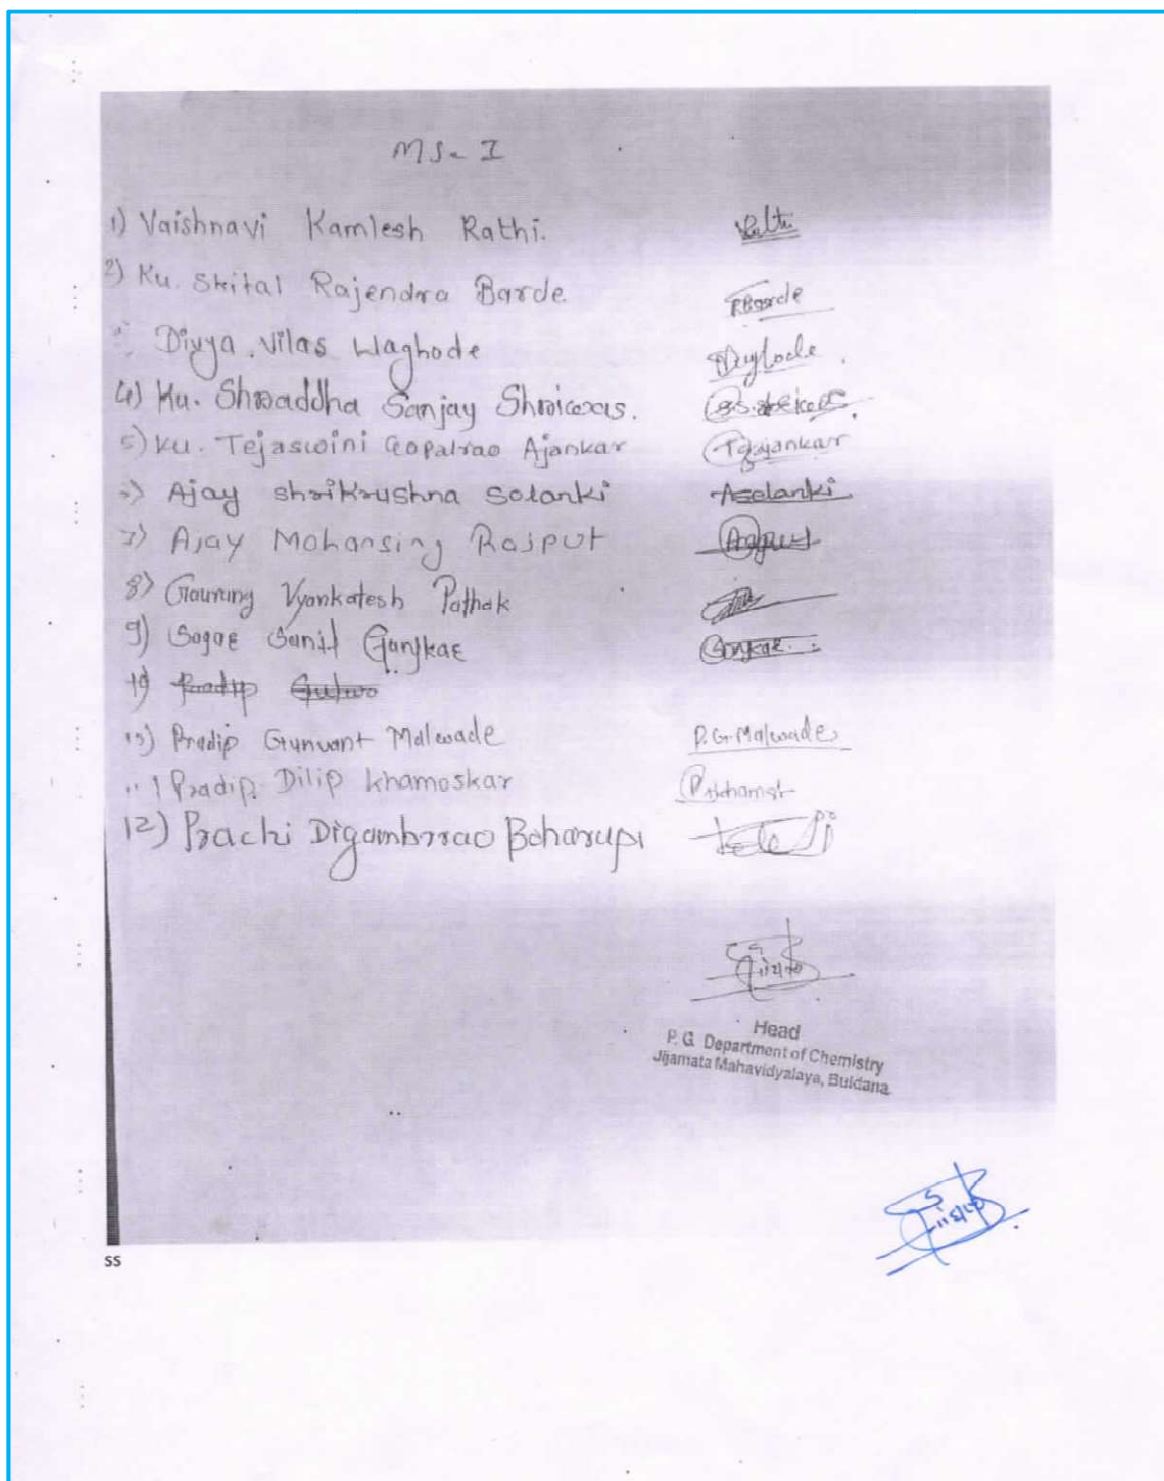 MSc I
1) Vaishnavi Kamlesh Rathi. Rathi
2) Ku. Shital Rajendra Barde. RBarde
Divya. Vilas Waghode
4) Ku. Shraddha Sanjay Shriwas.
5) Ku. Tejaswini Gopalrao Ajankar TGAjankar
Ajay shrikrushna Solanki ASolanki
7) Ajay Mohansing Rajput
8) Gaurang Vyankatesh Pathak
9) Sagar Sunil Gunjkar Gunjkar
10) Pradip
10) Pradip Gunvant Malwade P.G.Malwade
11) Pradip. Dilip Khamoskar
12) Prachi Digambrrao Boharupi
Head
P. G. Department of Chemistry
Jijamata Mahavidyalaya, Buldana
SS